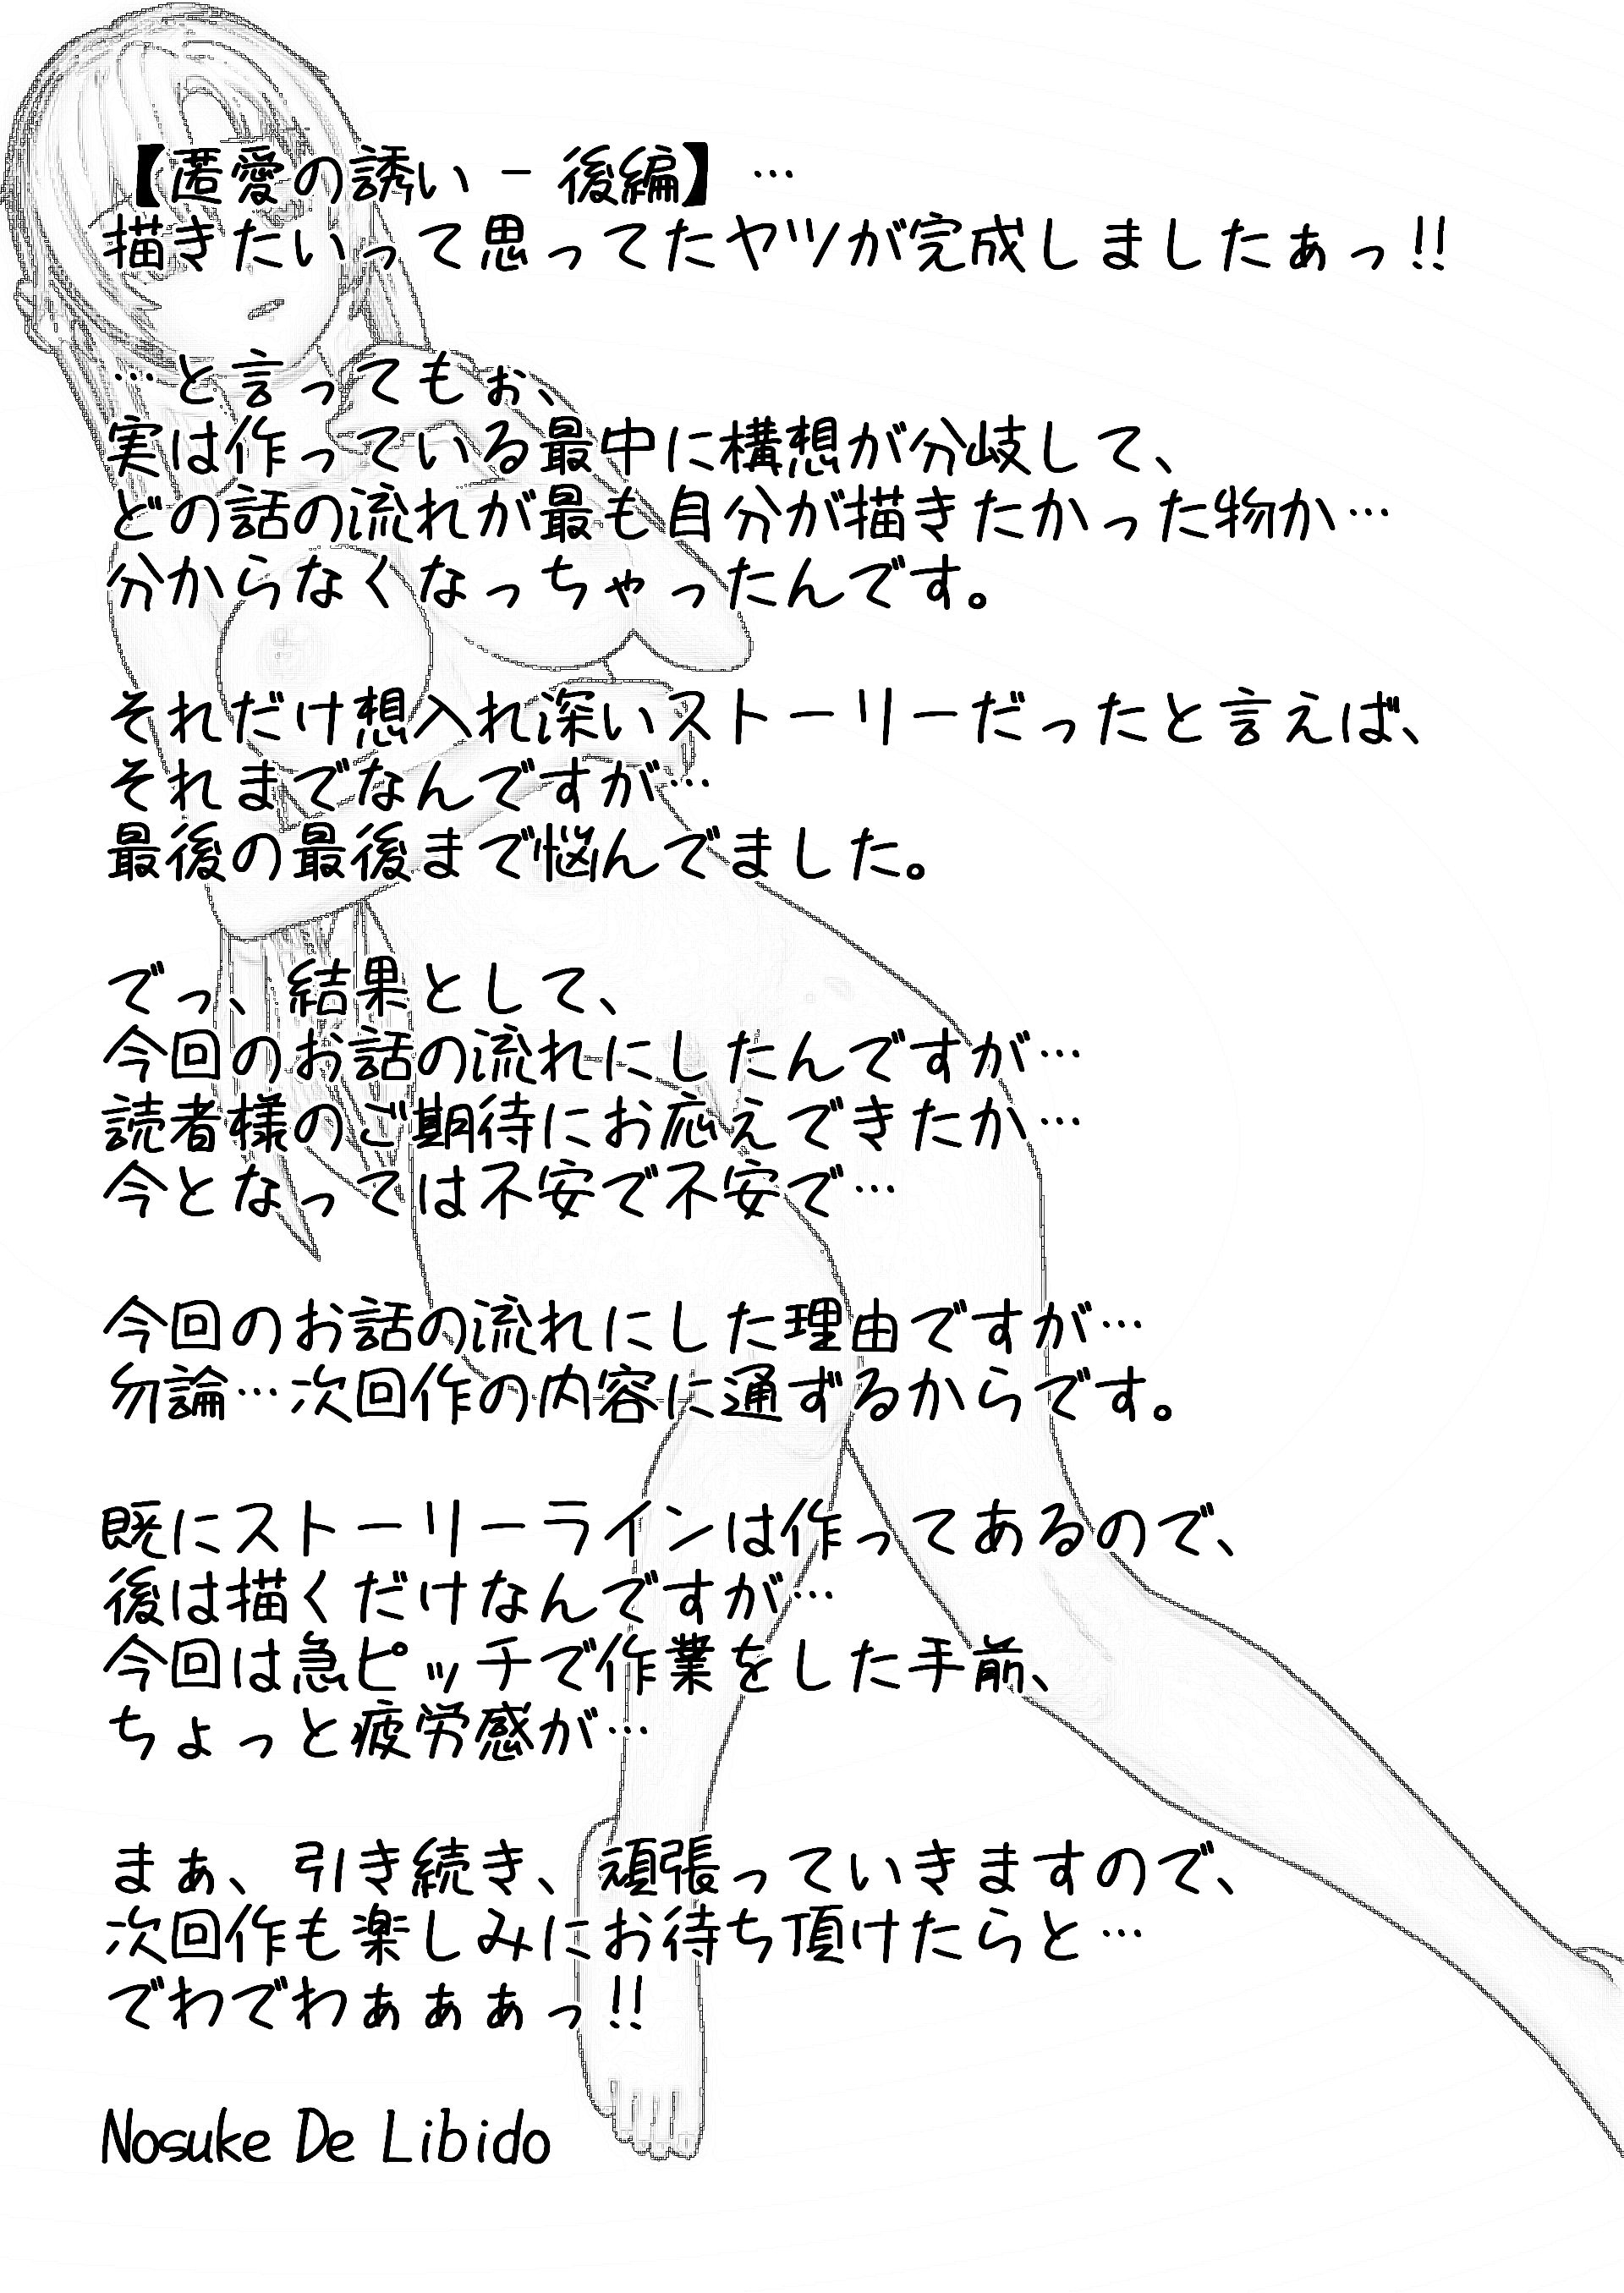 【匿愛の誘い - 後編】…
描きたいって思ってたヤツが完成しましたぁっ!!
…と言ってもぉ、
実は作っている最中に構想が分岐して、
どの話の流れが最も自分が描きたかった物か…
分からなくなっちゃったんです。
それだけ想入れ深いストーリーだったと言えば、
それまでなんですが…
最後の最後まで悩んでました。
でっ、結果として、
今回のお話の流れにしたんですが…
読者様のご期待にお応えできたか…
今となっては不安で不安で…
今回のお話の流れにした理由ですが…
勿論…次回作の内容に通ずるからです。
既にストーリーラインは作ってあるので、
後は描くだけなんですが…
今回は急ピッチで作業をした手前、
ちょっと疲労感が…
まぁ、引き続き、頑張っていきますので、
次回作も楽しみにお待ち頂けたらと…
でわでわぁぁぁっ!!
Nosuke De Libido